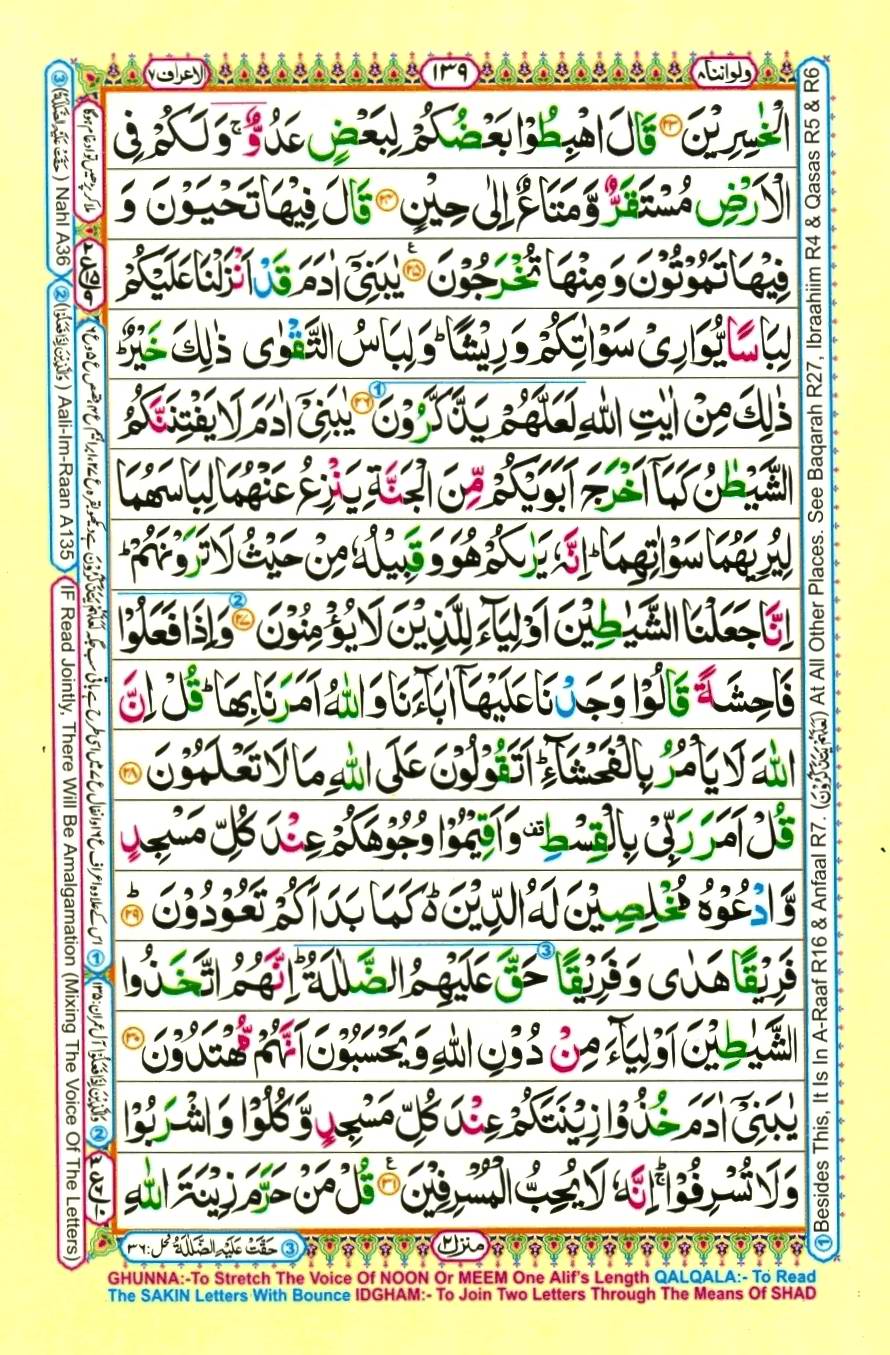 ولواننا ۸
۱۳۹
الاعراف ۷
الْخٰسِرِیْنَ ۝۲۳ قَالَ اهْبِطُوْا بَعْضُكُمْ لِبَعْضٍ عَدُوٌّ ۚ وَ لَكُمْ فِی
الْاَرْضِ مُسْتَقَرٌّ وَّ مَتَاعٌ اِلٰی حِیْنٍ ۝۲۴ قَالَ فِیْهَا تَحْیَوْنَ وَ
فِیْهَا تَمُوْتُوْنَ وَ مِنْهَا تُخْرَجُوْنَ ۝۲۵ یٰبَنِیْۤ اٰدَمَ قَدْ اَنْزَلْنَا عَلَیْكُمْ
لِبَاسًا یُّوَارِیْ سَوْاٰتِكُمْ وَ رِیْشًا ؕ وَ لِبَاسُ التَّقْوٰی ذٰلِكَ خَیْرٌ ؕ
ذٰلِكَ مِنْ اٰیٰتِ اللّٰهِ لَعَلَّهُمْ یَذَّكَّرُوْنَ ۝۲۶ یٰبَنِیْۤ اٰدَمَ لَا یَفْتِنَنَّكُمُ
الشَّیْطٰنُ كَمَاۤ اَخْرَجَ اَبَوَیْكُمْ مِّنَ الْجَنَّةِ یَنْزِعُ عَنْهُمَا لِبَاسَهُمَا
لِیُرِیَهُمَا سَوْاٰتِهِمَا ؕ اِنَّهٗ یَرٰىكُمْ هُوَ وَ قَبِیْلُهٗ مِنْ حَیْثُ لَا تَرَوْنَهُمْ ؕ
اِنَّا جَعَلْنَا الشَّیٰطِیْنَ اَوْلِیَآءَ لِلَّذِیْنَ لَا یُؤْمِنُوْنَ ۝۲۷ وَ اِذَا فَعَلُوْا
فَاحِشَةً قَالُوْا وَجَدْنَا عَلَیْهَاۤ اٰبَآءَنَا وَ اللّٰهُ اَمَرَنَا بِهَا ؕ قُلْ اِنَّ
اللّٰهَ لَا یَاْمُرُ بِالْفَحْشَآءِ ؕ اَتَقُوْلُوْنَ عَلَی اللّٰهِ مَا لَا تَعْلَمُوْنَ ۝۲۸
قُلْ اَمَرَ رَبِّیْ بِالْقِسْطِ ۫ وَ اَقِیْمُوْا وُجُوْهَكُمْ عِنْدَ كُلِّ مَسْجِدٍ
وَّ ادْعُوْهُ مُخْلِصِیْنَ لَهُ الدِّیْنَ ؕ۬ كَمَا بَدَاَكُمْ تَعُوْدُوْنَ ؕ۝۲۹
فَرِیْقًا هَدٰی وَ فَرِیْقًا حَقَّ عَلَیْهِمُ الضَّلٰلَةُ ؕ اِنَّهُمُ اتَّخَذُوا
الشَّیٰطِیْنَ اَوْلِیَآءَ مِنْ دُوْنِ اللّٰهِ وَ یَحْسَبُوْنَ اَنَّهُمْ مُّهْتَدُوْنَ ۝۳۰
یٰبَنِیْۤ اٰدَمَ خُذُوْا زِیْنَتَكُمْ عِنْدَ كُلِّ مَسْجِدٍ وَّ كُلُوْا وَ اشْرَبُوْا
وَ لَا تُسْرِفُوْا ۚ اِنَّهٗ لَا یُحِبُّ الْمُسْرِفِیْنَ ۝۳۱ قُلْ مَنْ حَرَّمَ زِیْنَةَ اللّٰهِ
منزل ۲
③ حَقَّتْ عَلَيْهِ الضَّلَالَةُ نحل: ۳۶
① Besides This, It Is In A-Raaf R16 & Anfaal R7. (لَعَلَّهُمْ يَتَذَكَّرُوْنَ) At All Other Places. See Baqarah R27, Ibraahiim R4 & Qasas R5 & R6
③ (حَقَّتْ عَلَيْهِ الضَّلٰلَةُ) Nahl A36
② (وَالَّذِيْنَ اِذَا فَعَلُوْا) Aali-Im-Raan A135
IF Read Jointly, There Will Be Amalgamation (Mixing The Voice Of The Letters)
② وَالَّذِيْنَ اِذَا فَعَلُوْا آل عمران: ۱۳۵
GHUNNA:-To Stretch The Voice Of NOON Or MEEM One Alif's Length QALQALA:- To Read
The SAKIN Letters With Bounce IDGHAM:- To Join Two Letters Through The Means Of SHAD